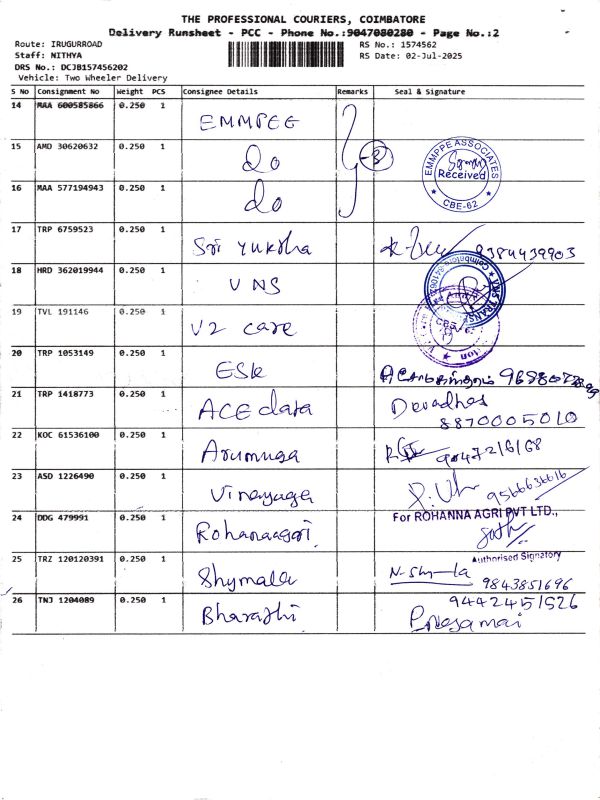 THE PROFESSIONAL COURIERS, COIMBATORE
Delivery Runsheet - PCC - Phone No.:9047080280 - Page No.:2
Route: IRUGURROAD
RS No.: 1574562
Staff: NITHYA
RS Date: 02-Jul-2025
DRS No.: DCJB157456202
Vehicle: Two Wheeler Delivery
S No Consignment No Weight PCS Consignee Details Remarks Seal & Signature
14 MAA 600585866 0.250 1 EMMPEE
15 AMD 30620632 0.250 1 do 3 EMMPPE ASSOCIATES Received CBE-62
16 MAA 577194943 0.250 1 do
17 TRP 6759523 0.250 1 Sri Yuktha 9384439903
18 HRD 362019944 0.250 1 VNS
19 TVL 191146 0.250 1 V2 care
20 TRP 1053149 0.250 1 ESK
21 TRP 1418773 0.250 1 ACE data Devadhas
8870005010
22 KOC 61536100 0.250 1 Arumuga
23 ASD 1226490 0.250 1 Vinayaga 9566636616
24 DDG 479991 0.250 1 Rohanaagri For ROHANNA AGRI PVT LTD.,
Authorised Signatory
25 TRZ 120120391 0.250 1 Shymala N-Shy-la 9843851696
26 TNJ 1204089 0.250 1 Bharathi 9442451526